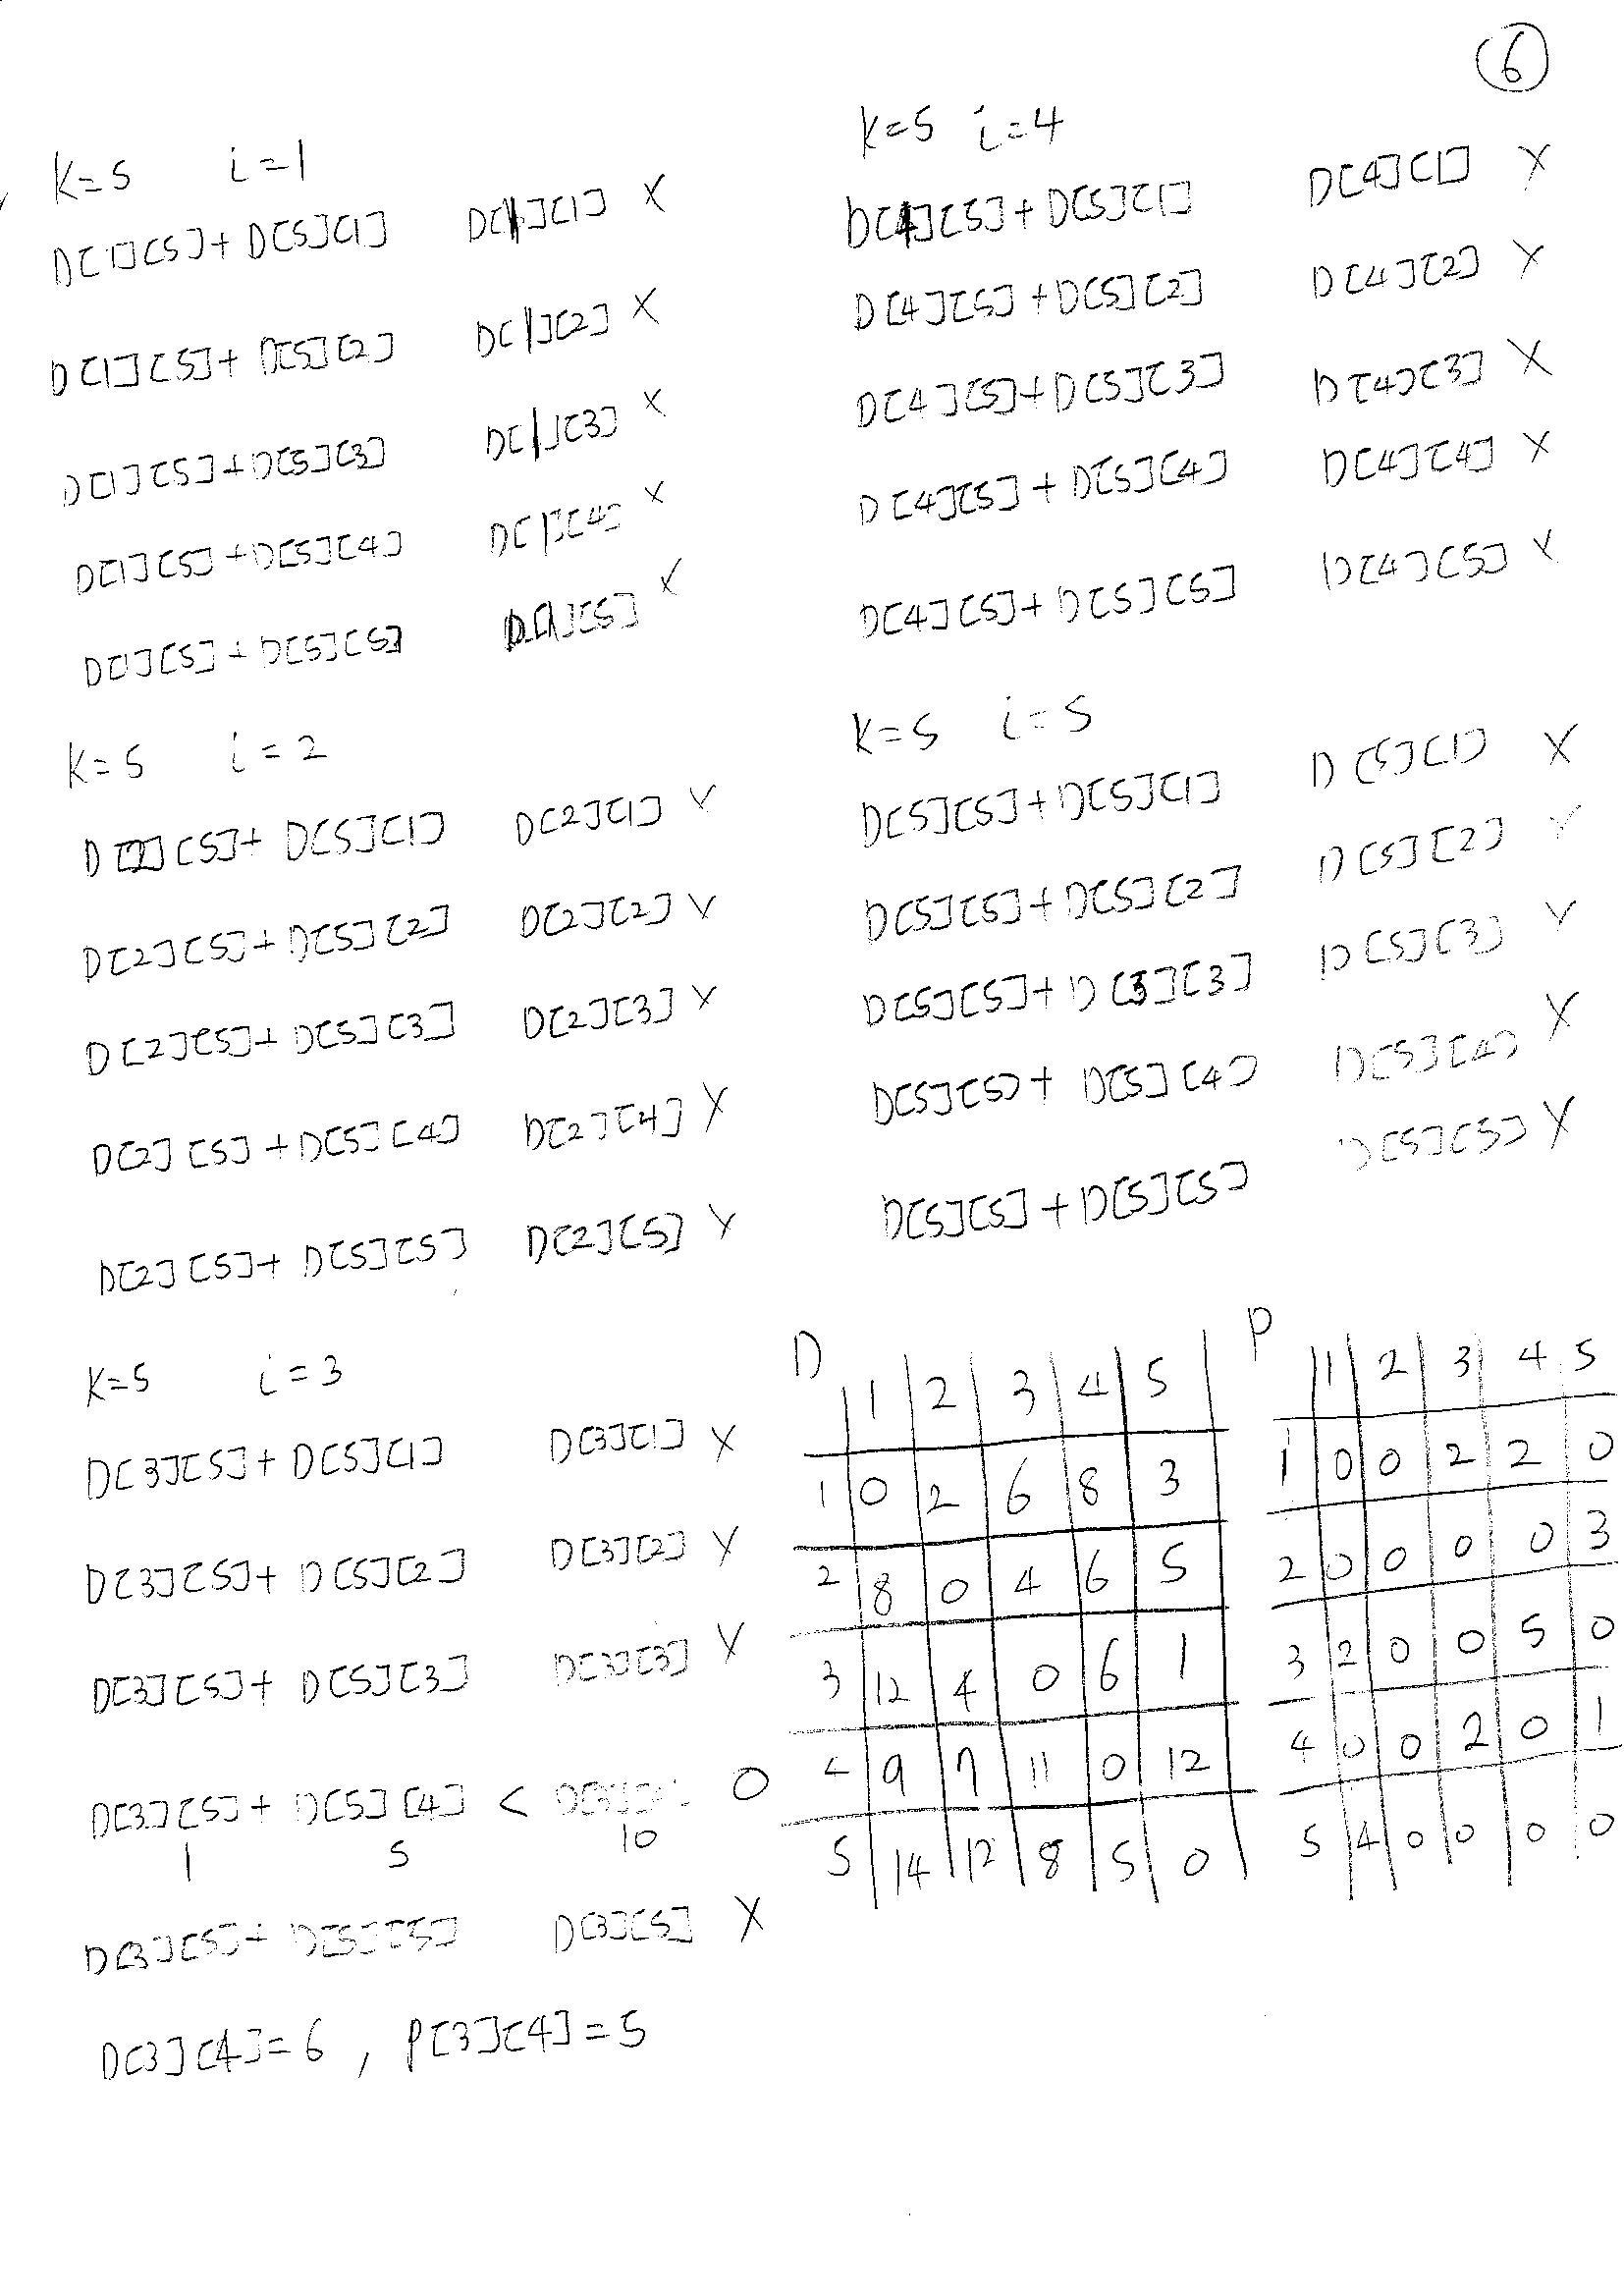 6
K=5 i=1
D[1][5]+D[5][1] D[1][1] X
D[1][5]+D[5][2] D[1][2] X
D[1][5]+D[5][3] D[1][3] X
D[1][5]+D[5][4] D[1][4] X
D[1][5]+D[5][5] D[1][5] X
K=5 i=2
D[2][5]+D[5][1] D[2][1] X
D[2][5]+D[5][2] D[2][2] X
D[2][5]+D[5][3] D[2][3] X
D[2][5]+D[5][4] D[2][4] X
D[2][5]+D[5][5] D[2][5] X
K=5 i=3
D[3][5]+D[5][1] D[3][1] X
D[3][5]+D[5][2] D[3][2] X
D[3][5]+D[5][3] D[3][3] X
D[3][5]+D[5][4] < O
1 5 10
D[3][5]+D[5][5] D[3][5] X
D[3][4]=6, P[3][4]=5
K=5 i=4
D[4][5]+D[5][1] D[4][1] X
D[4][5]+D[5][2] D[4][2] X
D[4][5]+D[5][3] D[4][3] X
D[4][5]+D[5][4] D[4][4] X
D[4][5]+D[5][5] D[4][5] X
K=5 i=5
D[5][5]+D[5][1] D[5][1] X
D[5][5]+D[5][2] D[5][2] X
D[5][5]+D[3][3] D[5][3] X
D[5][5]+D[5][4] D[5][4] X
D[5][5]+D[5][5] D[5][5] X
D
1 2 3 4 5
1 0 2 6 8 3
2 8 0 4 6 5
3 12 4 0 6 1
4 9 7 11 0 12
5 14 12 8 5 0
P
1 2 3 4 5
1 0 0 2 2 0
2 0 0 0 0 3
3 2 0 0 5 0
4 0 0 2 0 1
5 4 0 0 0 0